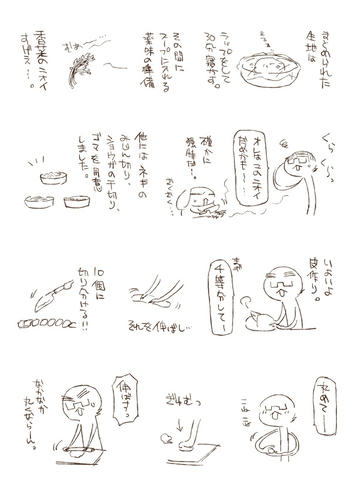 まとめられた
生地は
ラップをして
30分寝かす。
その間に
スープに入れる
薬味の準備
もあ〜
香菜のニオイ
すげえ…。
くら
くら〜
オレはこのニオイ
だめかも〜…
確かに
強烈な…。
他にはネギの
みじん切り、
ショウガの千切り、
ゴマを用意
しました。
いよいよ
皮作り。
まず
4等分して〜
それを伸ばし…
10個に
切り分ける!!
丸めて〜
こね
こね
ぎゅむっ
伸ばすっ
なかなか
丸くならーん。